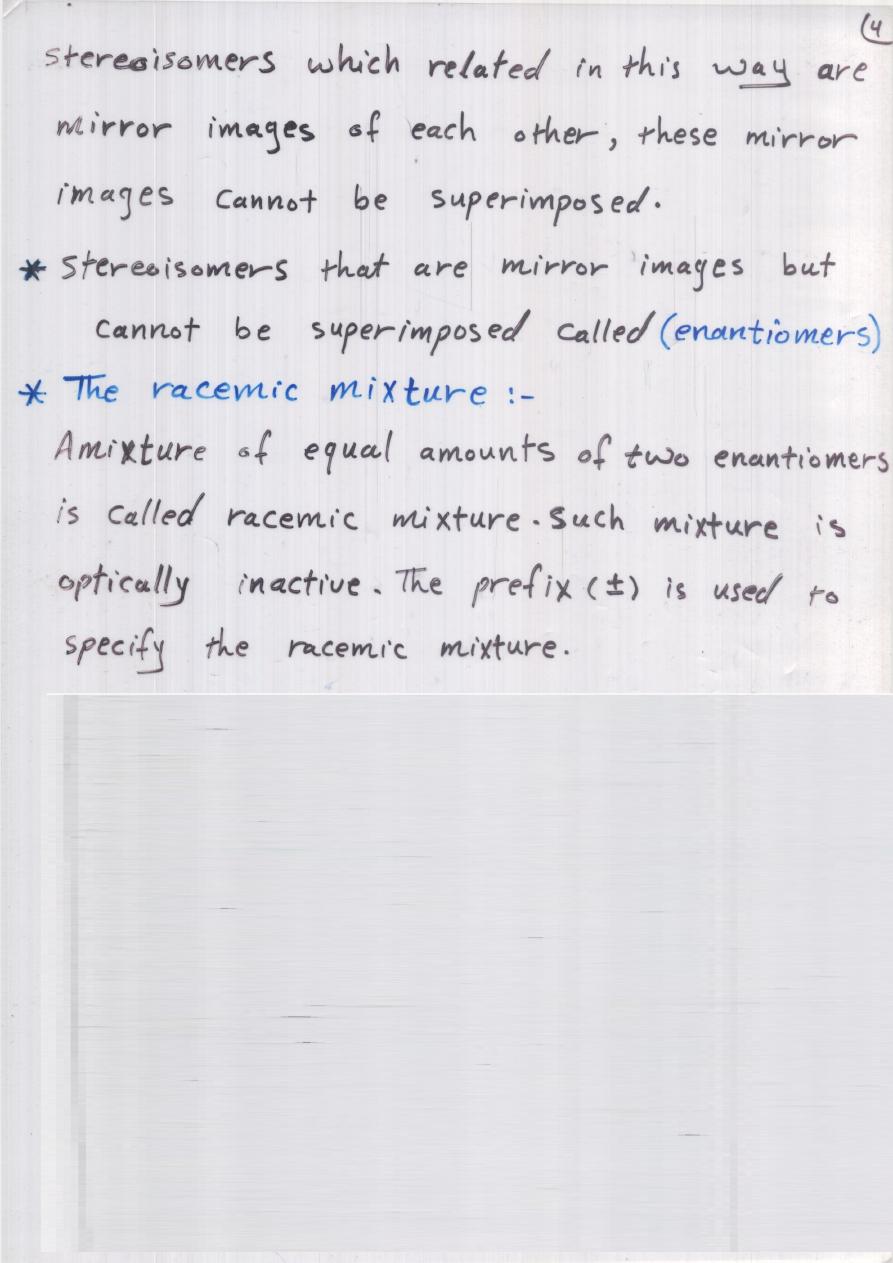 (4
stereoisomers which related in this way are
mirror images of each other, these mirror
images cannot be superimposed.
* Stereoisomers that are mirror images but
cannot be superimposed called (enantiomers)
* The racemic mixture :-
Amixture of equal amounts of two enantiomers
is called racemic mixture. Such mixture is
optically inactive. The prefix (±) is used to
specify the racemic mixture.